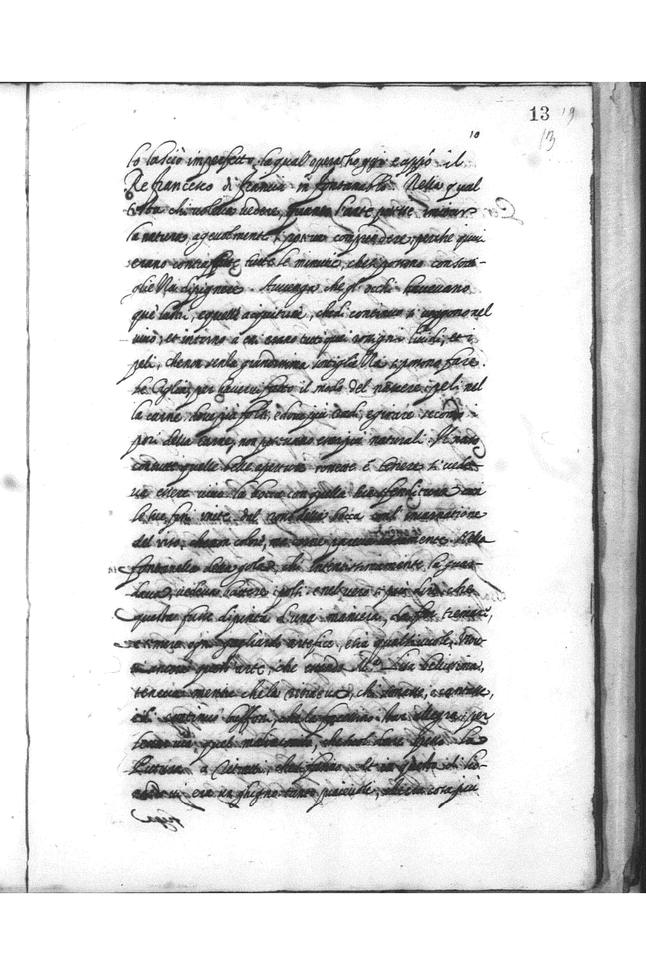 13 19
13
10
lo lasciò imperfetto, la qual opera hoggi è appò il
Re francesco di francia in fontanableo. Nella qual
testa chi voleva vedere, quanto l'arte potesse imitar
la natura, agevolmente si poteva comprendere, perche quivi
erano contrafatte tutte le minutie, che si possono con sotti-
gliezza dipignere. Avvenga che gl'occhi havevano
que' lustri, e quelle acquitrine, che di continuo si veggono nel
vivo, et intorno a essi erano tutti que' rossigni lividi, et i
peli, che non senza grandissima sottigliezza si possono fare.
Le Ciglia, per havervi fatto il modo del nascere i peli nel
la carne, dove più folti, e dove più radi, e girare secondo i
pori della carne, non potevano essere più naturali. Il naso
con tutte quelle belle aperture rossette e tenere si vede-
va essere vivo. la bocca con quella sua sfenditura con
le sue fini unite dal rosso della bocca con l'incarnatione
del viso, che non colori, ma carne pareva veramente. Nella
fontanella della gola, chi intensissimamente la guar-
dava, vedeva battere i polsi. e nel vero si può dire che
questa fusse dipinta d'una maniera, da far tremare,
e temere ogni gagliardo artefice, e sia qual si vuole.
questa arte, che essendo M.ᵃ Lisa bellissima,
teneva mentre che la ritraeva, chi sonasse, o cantasse,
e di continuo buffoni, che la facessino star allegra, per
levar via quel malinconico, che suol dare spesso la
Pittura a' Ritratti, che si fanno. et in questo di Lio-
nardo vi era un ghigno tanto piacevole, che era cosa più